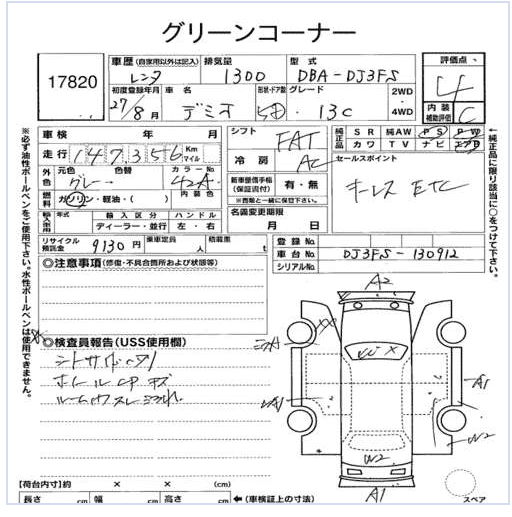 グリーンコーナー
17820
車歴 (自家用以外は記入)
レンタ
排気量
1300
型式
DBA-DJ3FS
評価点
4
初度登録年月
27/8月
車名
デミオ
形状・ドア数
5D
グレード
13C
2WD
4WD
内装
補助評価
C
車検 年 月
シフト
FAT
純正品
SR 純AW PS PW
カワ TV ナビ エアB
走行 147,356 Km
マイル
冷房
AC
セールスポイント
キーレス ETC
外色
元色 色替 カラーNo.
グレー 42A
燃料
ガソリン・軽油・( )
内装色
新車整備手帳
(保証書付)
有・無
※西暦と一緒に保管下さい。
輸入車用
年式 輸入区分 ハンドル
ディーラー・並行 左・右
名義変更期限
月 日
リサイクル
預託金
9130円
乗車定員
人
積載量
t
登録No.
車台No. DJ3FS-130912
シリアルNo.
◎注意事項 (修復・不具合箇所および状態等)
◎検査員報告 (USS使用欄)
A2
X
A1
A1
W2
W2
A1
【荷台内寸】約 × × (cm)
長さ cm 幅 cm 高さ cm ← (車検証上の寸法)
スペア
※必ず油性ボールペンをご使用下さい。水性ボールペンは使用できません。
←純正品に限り該当に○をつけて下さい。